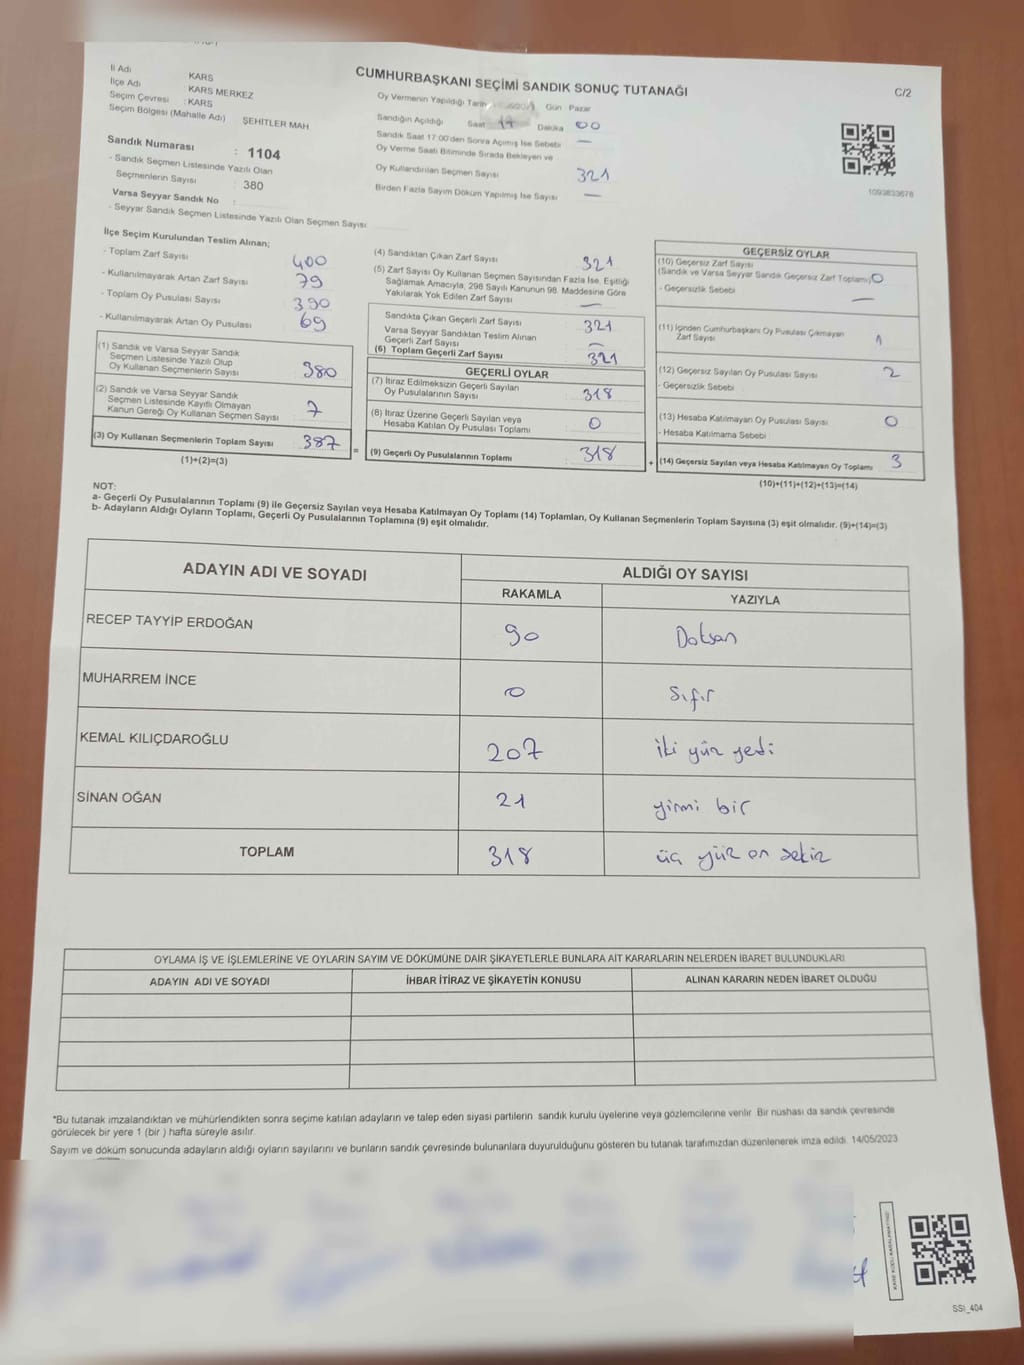 İl Adı KARS
İlçe Adı KARS MERKEZ
Seçim Çevresi : KARS
Seçim Bölgesi (Mahalle Adı) ŞEHİTLER MAH
Sandık Numarası : 1104
- Sandık Seçmen Listesinde Yazılı Olan
Seçmenlerin Sayısı : 380
Varsa Seyyar Sandık No :
- Seyyar Sandık Seçmen Listesinde Yazılı Olan Seçmen Sayısı:
CUMHURBAŞKANI SEÇİMİ SANDIK SONUÇ TUTANAĞI
C/2
Oy Vermenin Yapıldığı Tarih Gün Pazar
Sandığın Açıldığı Saat 17 Dakika 00
Sandık Saat 17:00'den Sonra Açılmış İse Sebebi —
Oy Verme Saati Bitiminde Sırada Bekleyen ve
Oy Kullandırılan Seçmen Sayısı 321
Birden Fazla Sayım Döküm Yapılmış İse Sayısı —
1093833678
İlçe Seçim Kurulundan Teslim Alınan;
- Toplam Zarf Sayısı 400
- Kullanılmayarak Artan Zarf Sayısı 79
- Toplam Oy Pusulası Sayısı 390
- Kullanılmayarak Artan Oy Pusulası 69
(1) Sandık ve Varsa Seyyar Sandık
Seçmen Listesinde Yazılı Olup
Oy Kullanan Seçmenlerin Sayısı 380
(2) Sandık ve Varsa Seyyar Sandık
Seçmen Listesinde Kayıtlı Olmayan
Kanun Gereği Oy Kullanan Seçmen Sayısı 7
(3) Oy Kullanan Seçmenlerin Toplam Sayısı 387 =
(1)+(2)=(3)
(4) Sandıktan Çıkan Zarf Sayısı 321
(5) Zarf Sayısı Oy Kullanan Seçmen Sayısından Fazla İse, Eşitliği
Sağlamak Amacıyla, 298 Sayılı Kanunun 98. Maddesine Göre
Yakılarak Yok Edilen Zarf Sayısı —
Sandıkta Çıkan Geçerli Zarf Sayısı 321
Varsa Seyyar Sandıktan Teslim Alınan
Geçerli Zarf Sayısı —
(6) Toplam Geçerli Zarf Sayısı 321
GEÇERLİ OYLAR
(7) İtiraz Edilmeksizin Geçerli Sayılan
Oy Pusulalarının Sayısı : 318
(8) İtiraz Üzerine Geçerli Sayılan veya
Hesaba Katılan Oy Pusulası Toplamı : 0
(9) Geçerli Oy Pusulalarının Toplamı : 318 +
GEÇERSİZ OYLAR
(10) Geçersiz Zarf Sayısı
(Sandık ve Varsa Seyyar Sandık Geçersiz Zarf Toplamı) 0
- Geçersizlik Sebebi —
(11) İçinden Cumhurbaşkanı Oy Pusulası Çıkmayan
Zarf Sayısı 1
(12) Geçersiz Sayılan Oy Pusulası Sayısı 2
- Geçersizlik Sebebi
(13) Hesaba Katılmayan Oy Pusulası Sayısı 0
- Hesaba Katılmama Sebebi
(14) Geçersiz Sayılan veya Hesaba Katılmayan Oy Toplamı 3
(10)+(11)+(12)+(13)=(14)
NOT:
a- Geçerli Oy Pusulalarının Toplamı (9) ile Geçersiz Sayılan veya Hesaba Katılmayan Oy Toplamı (14) Toplamları, Oy Kullanan Seçmenlerin Toplam Sayısına (3) eşit olmalıdır. (9)+(14)=(3)
b- Adayların Aldığı Oyların Toplamı, Geçerli Oy Pusulalarının Toplamına (9) eşit olmalıdır.
ADAYIN ADI VE SOYADI ALDIĞI OY SAYISI
RAKAMLA YAZIYLA
RECEP TAYYİP ERDOĞAN 90 Doksan
MUHARREM İNCE 0 Sıfır
KEMAL KILIÇDAROĞLU 207 iki yüz yedi
SİNAN OĞAN 21 yirmi bir
TOPLAM 318 üç yüz on sekiz
OYLAMA İŞ VE İŞLEMLERİNE VE OYLARIN SAYIM VE DÖKÜMÜNE DAİR ŞİKAYETLERLE BUNLARA AİT KARARLARIN NELERDEN İBARET BULUNDUKLARI
ADAYIN ADI VE SOYADI İHBAR İTİRAZ VE ŞİKAYETİN KONUSU ALINAN KARARIN NEDEN İBARET OLDUĞU
*Bu tutanak imzalandıktan ve mühürlendikten sonra seçime katılan adayların ve talep eden siyasi partilerin sandık kurulu üyelerine veya gözlemcilerine verilir. Bir nüshası da sandık çevresinde
görülecek bir yere 1 (bir ) hafta süreyle asılır.
Sayım ve döküm sonucunda adayların aldığı oyların sayılarını ve bunların sandık çevresinde bulunanlara duyurulduğunu gösteren bu tutanak tarafımızdan düzenlenerek imza edildi. 14/05/2023
KARE KODU KARALAMAYINIZ!
SSI_404